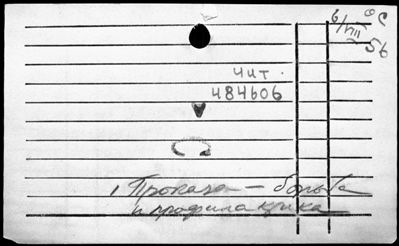 6/VIII
56
чит.
484606
Проказа — борьба
и профилактика